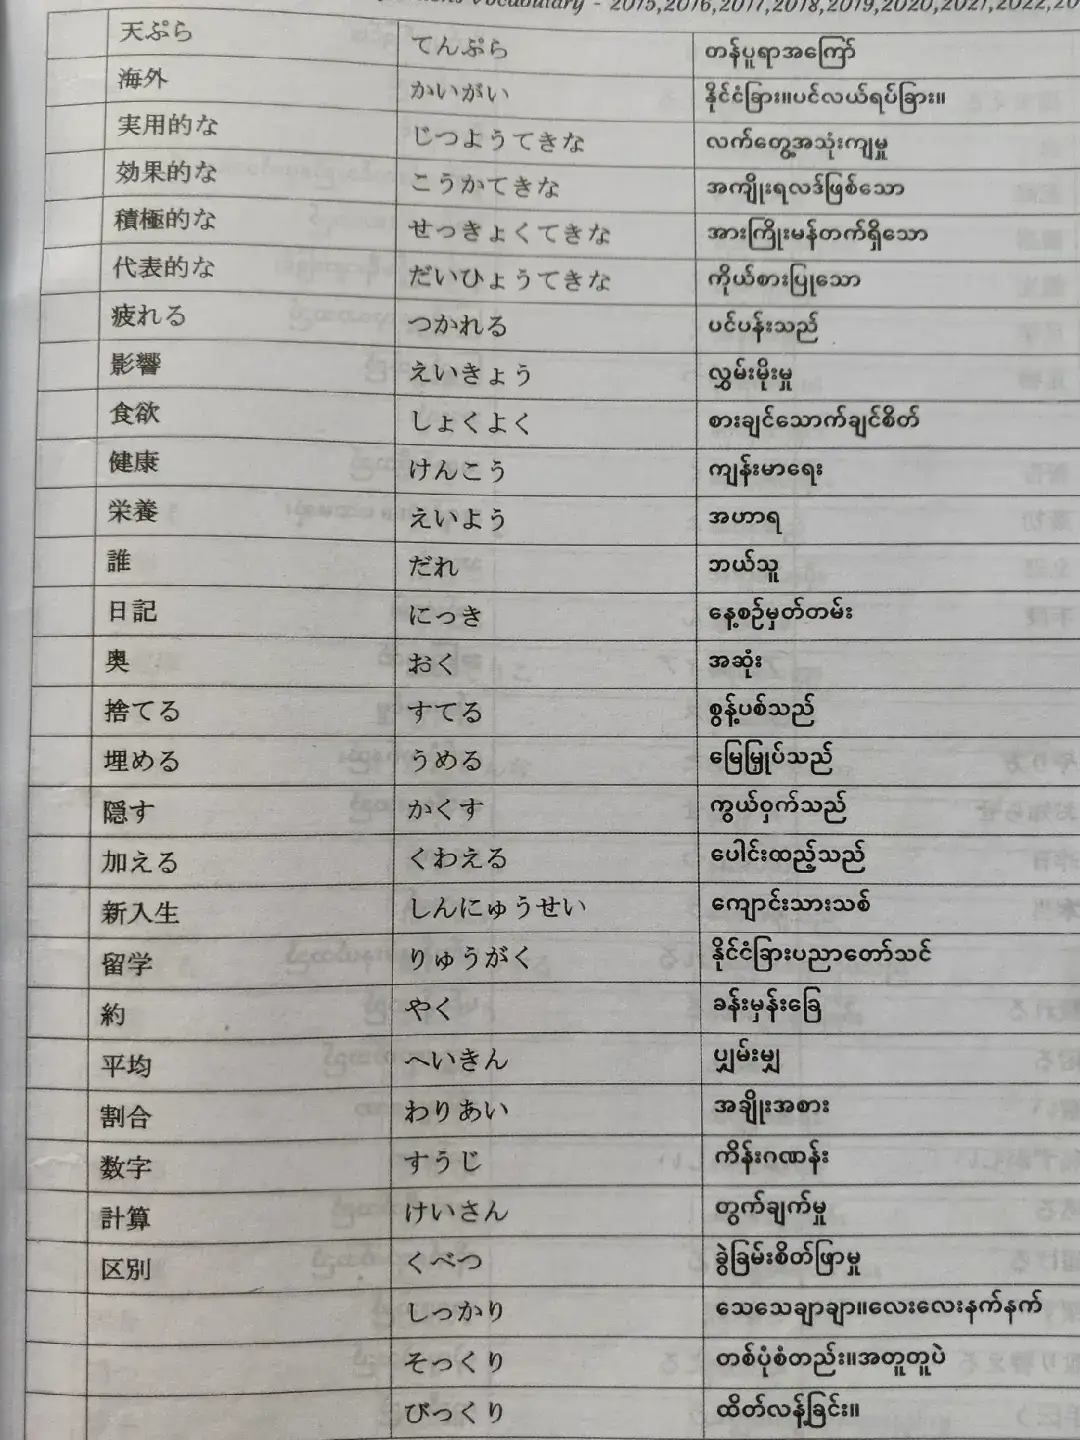 Vocabulary - 2015,2016,2017,2018,2019,2020,2021,2022,20
天ぷら てんぷら တန်ပူရာအကြော်
海外 かいがい နိုင်ငံခြား။ပင်လယ်ရပ်ခြား။
実用的な じつようてきな လက်တွေ့အသုံးကျမှု
効果的な こうかてきな အကျိုးရလဒ်ဖြစ်သော
積極的な せっきょくてきな အားကြိုးမန်တက်ရှိသော
代表的な だいひょうてきな ကိုယ်စားပြုသော
疲れる つかれる ပင်ပန်းသည်
影響 えいきょう လွှမ်းမိုးမှု
食欲 しょくよく စားချင်သောက်ချင်စိတ်
健康 けんこう ကျန်းမာရေး
栄養 えいよう အဟာရ
誰 だれ ဘယ်သူ
日記 にっき နေ့စဉ်မှတ်တမ်း
奥 おく အဆုံး
捨てる すてる စွန့်ပစ်သည်
埋める うめる မြေမြှုပ်သည်
隠す かくす ကွယ်ဝှက်သည်
加える くわえる ပေါင်းထည့်သည်
新入生 しんにゅうせい ကျောင်းသားသစ်
留学 りゅうがく နိုင်ငံခြားပညာတော်သင်
約 やく ခန်းမှန်းခြေ
平均 へいきん ပျှမ်းမျှ
割合 わりあい အချိုးအစား
数字 すうじ ကိန်းဂဏန်း
計算 けいさん တွက်ချက်မှု
区別 くべつ ခွဲခြမ်းစိတ်ဖြာမှု
しっかり သေသေချာချာ။လေးလေးနက်နက်
そっくり တစ်ပုံစံတည်း။အတူတူပဲ
びっくり ထိတ်လန့်ခြင်း။